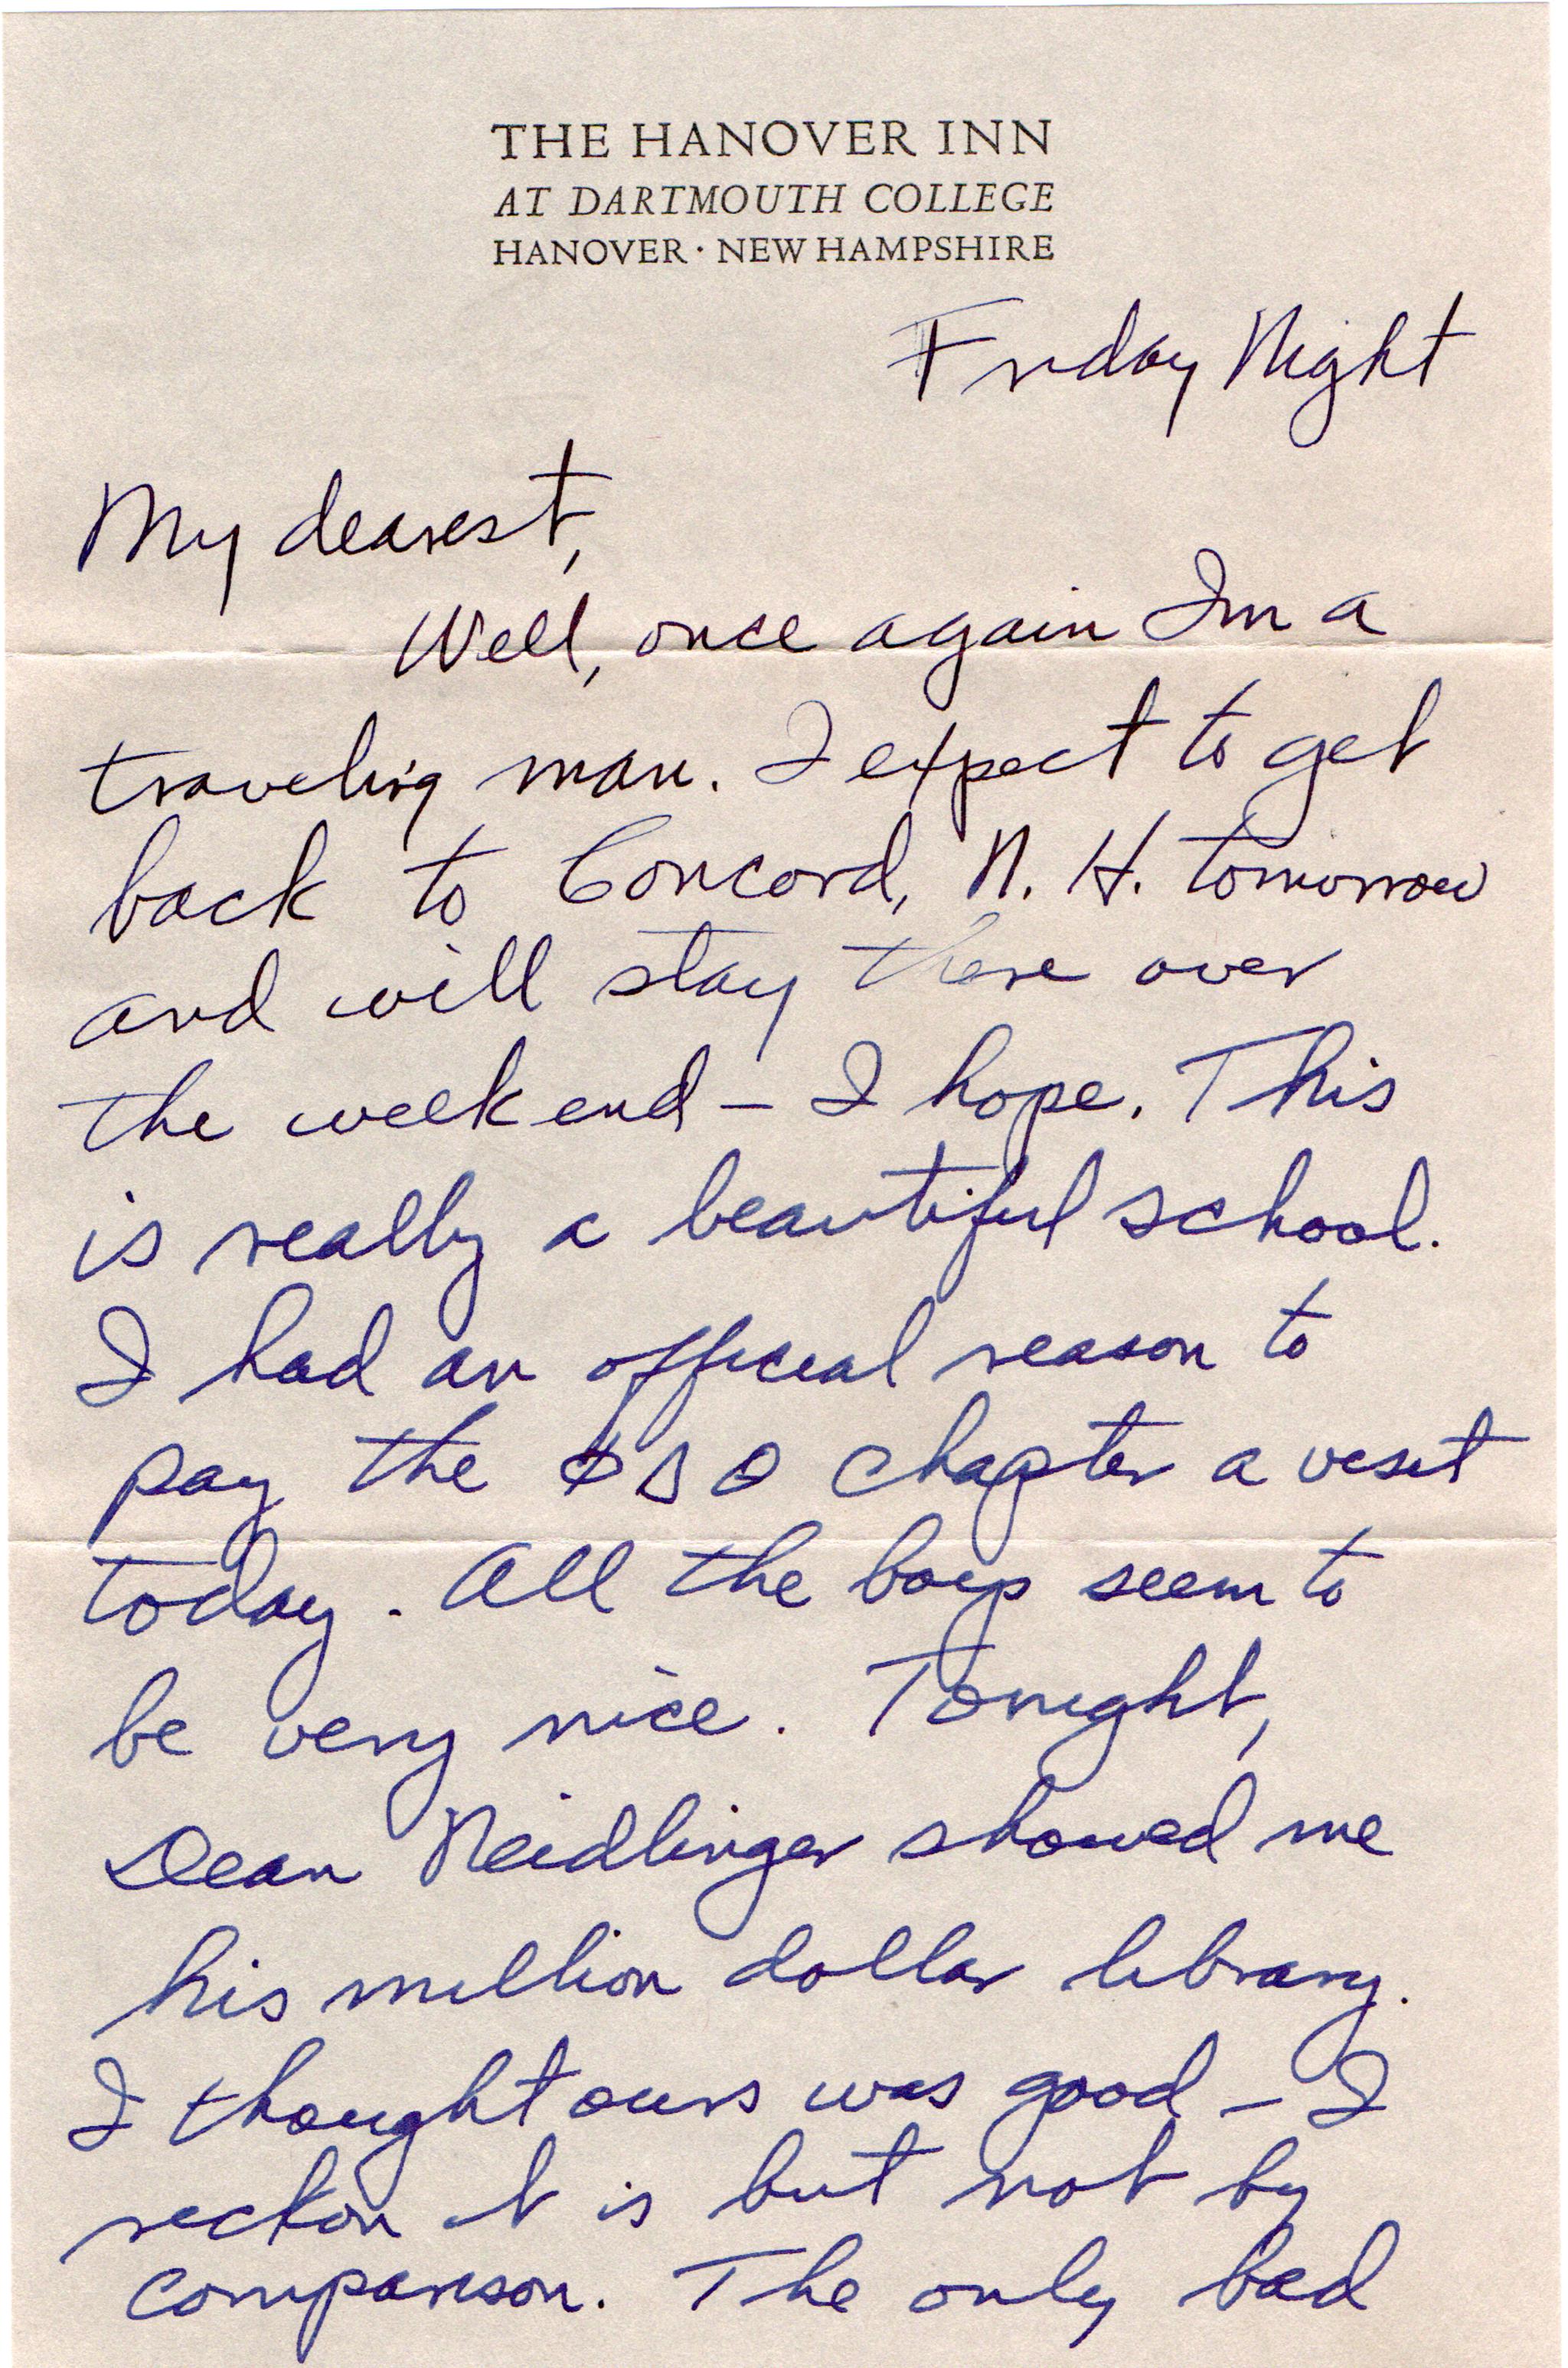 THE HANOVER INN
AT DARTMOUTH COLLEGE
HANOVER · NEW HAMPSHIRE
Friday Night
My dearest,
Well, once again Im a
traveling man. I expect to get
back to Concord, N. H. tomorrow
and will stay there over
the weekend – I hope. This
is really a beautiful school.
I had an official reason to
pay the ΦΔΘ chapter a visit
today. All the boys seem to
be very nice. Tonight,
Dean Neidlinger showed me
his million dollar library.
I thought ours was good – I
reckon it is but not by
comparison. The only bad